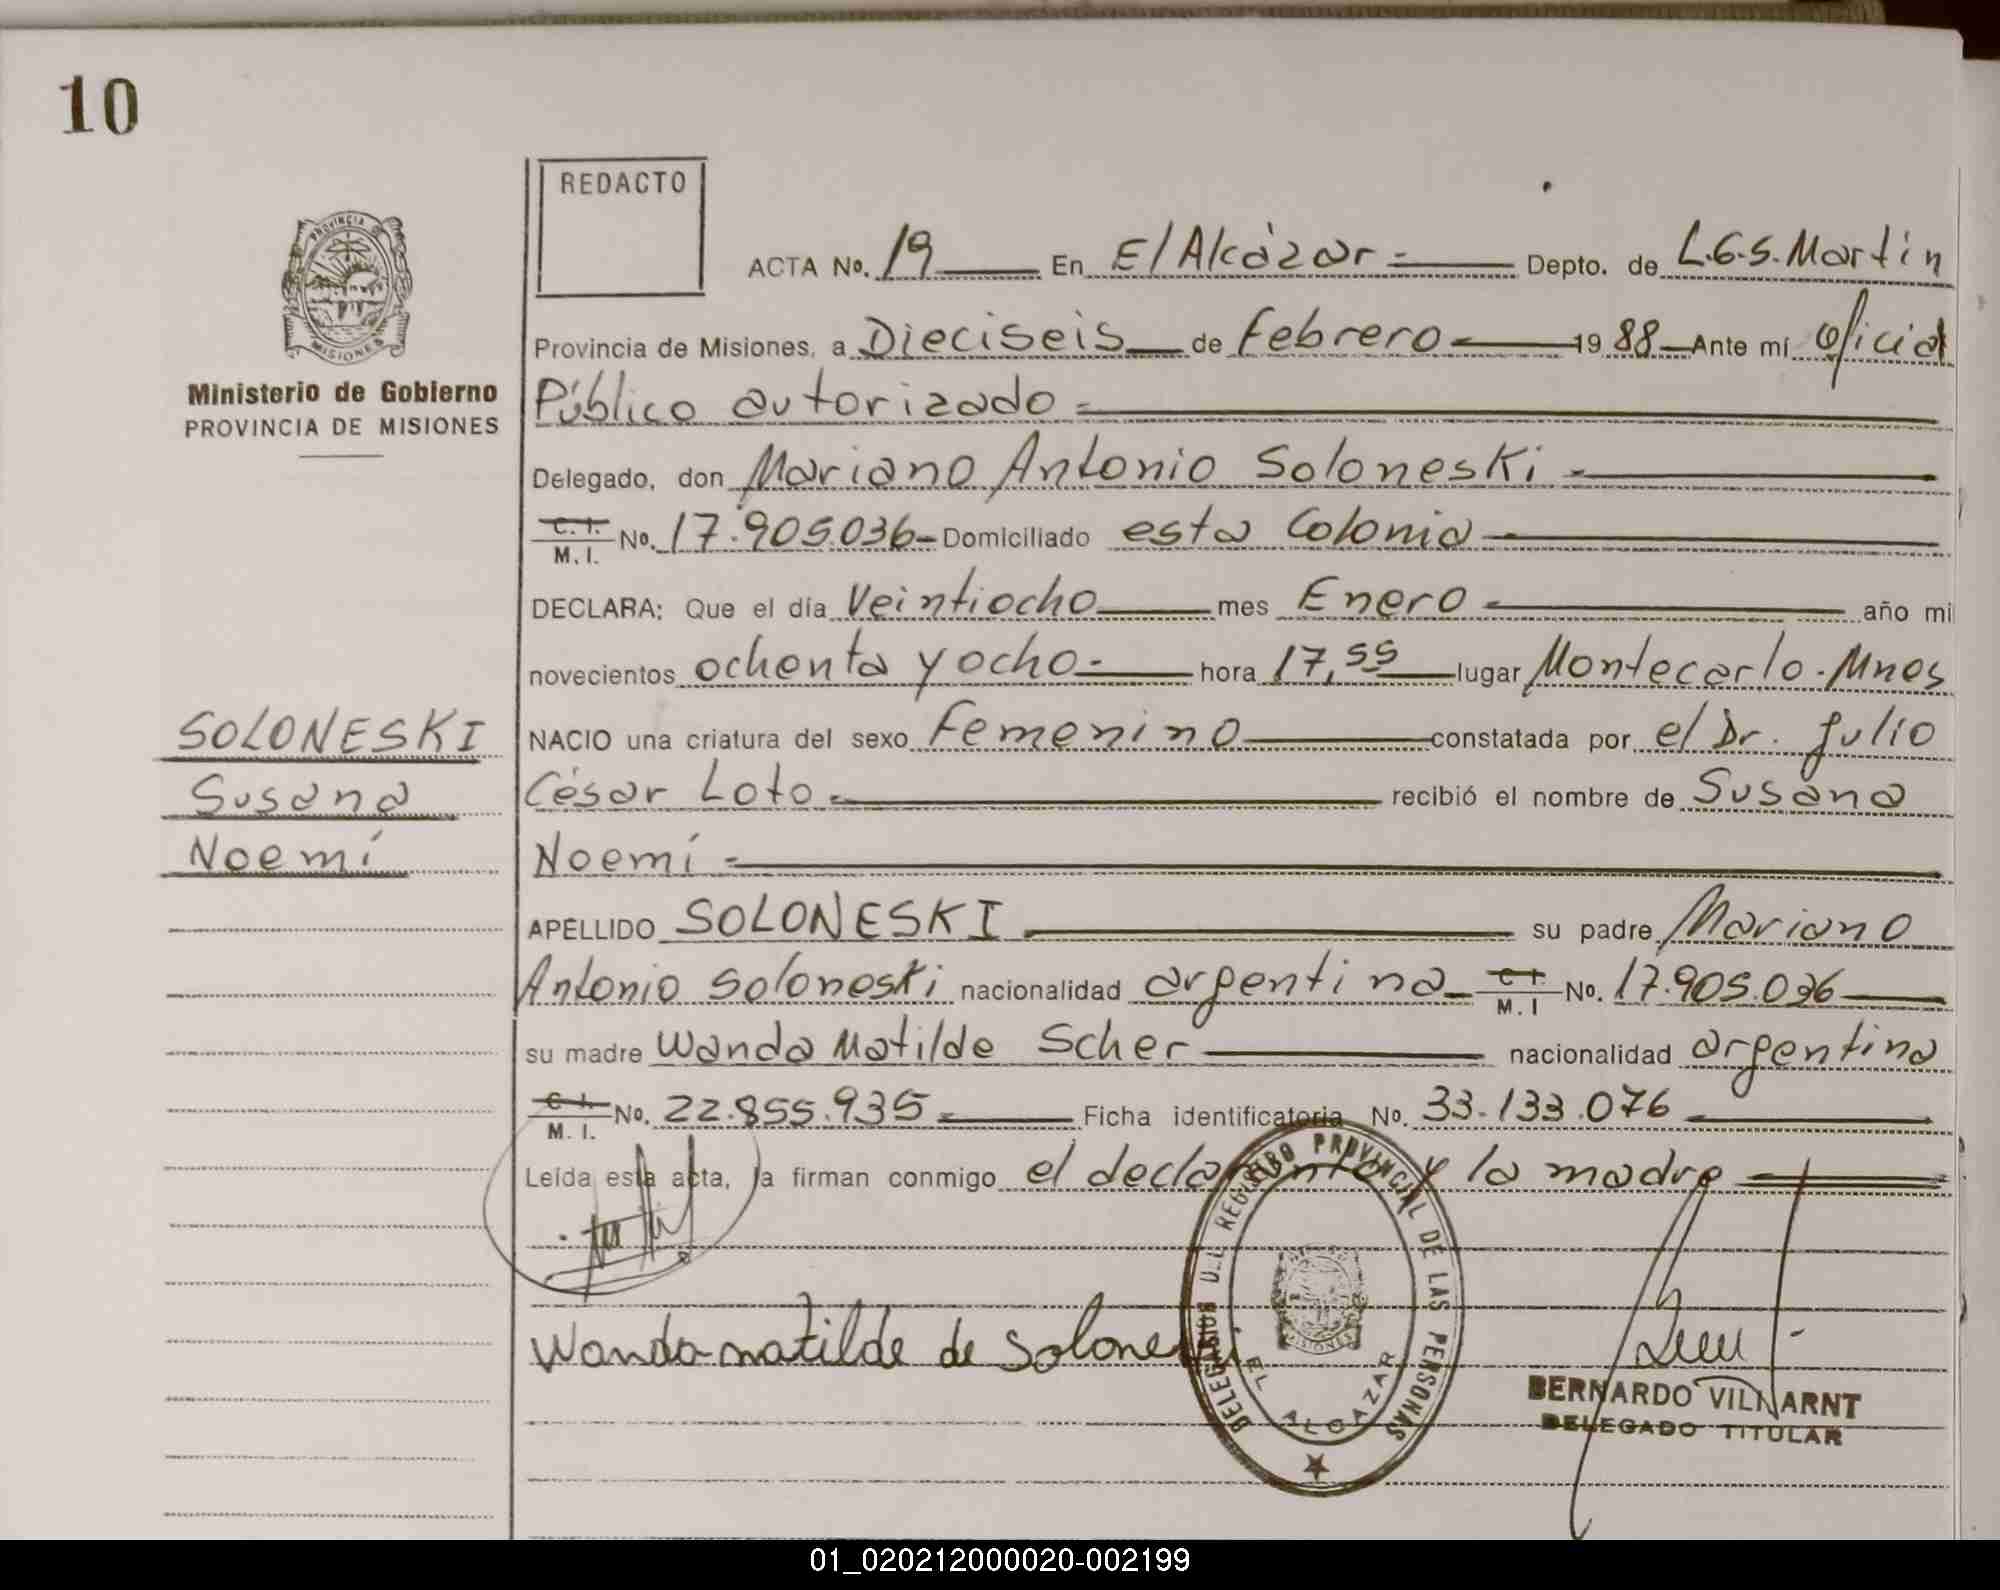 10
REDACTO
PROVINCIA D
MISIONES
Ministerio de Gobierno
PROVINCIA DE MISIONES
ACTA No. 19 En El Alcázar = Depto. de L.G.S. Martín
Provincia de Misiones, a Dieciseis de Febrero 1988 Ante mí Oficial
Público autorizado =
Delegado, don Mariano Antonio Soloneski =
C.I. M.I. No. 17.905.036 Domiciliado esta Colonia
DECLARA: Que el día Veintiocho mes Enero año mi
novecientos ochenta y ocho hora 17,55 lugar Montecarlo-Mnes
SOLONESKI
Susana
Noemí
NACIO una criatura del sexo Femenino constatada por el Dr. Julio
César Loto recibió el nombre de Susana
Noemí
APELLIDO SOLONESKI su padre Mariano
Antonio Soloneski nacionalidad argentina C.I. M.I No. 17.905.036
su madre Wanda Matilde Scher nacionalidad argentina
C.I. M.I. No. 22.855.935 Ficha identificatoria No. 33.133.076
Leída esta acta, la firman conmigo el declarante y la madre
Wanda matilde de Solone
REGISTRO PROVINCIAL DE LAS PERSONAS
EL ALCAZAR
MISIONES
BERNARDO VILNARNT
DELEGADO TITULAR
01_020212000020-002199